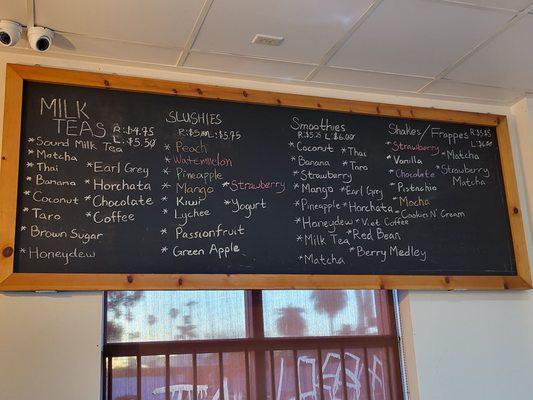 MILK TEAS R:$4.75 L:$5.50
* Sound Milk Tea
* Matcha
* Thai
* Banana
* Coconut
* Taro
* Brown Sugar
* Honeydew
* Earl Grey
* Horchata
* Chocolate
* Coffee
SLUSHIES
R:$5.00 L:$5.75
* Peach
* Watermelon
* Pineapple
* Mango
* Kiwi
* Lychee
* Passionfruit
* Green Apple
* Strawberry
* Yogurt
Smoothies
R:$5.25 L:$6.00
* Coconut
* Banana
* Strawberry
* Mango
* Pineapple
* Honeydew
* Milk Tea
* Matcha
* Thai
* Taro
* Earl Grey
* Horchata
* Viet Coffee
* Red Bean
* Berry Medley
Shakes/Frappes R:$5.25 L:$6.00
* Strawberry
* Vanilla
* Chocolate
* Pistachio
* Mocha
* Cookies N' Cream
* Matcha
* Strawberry Matcha